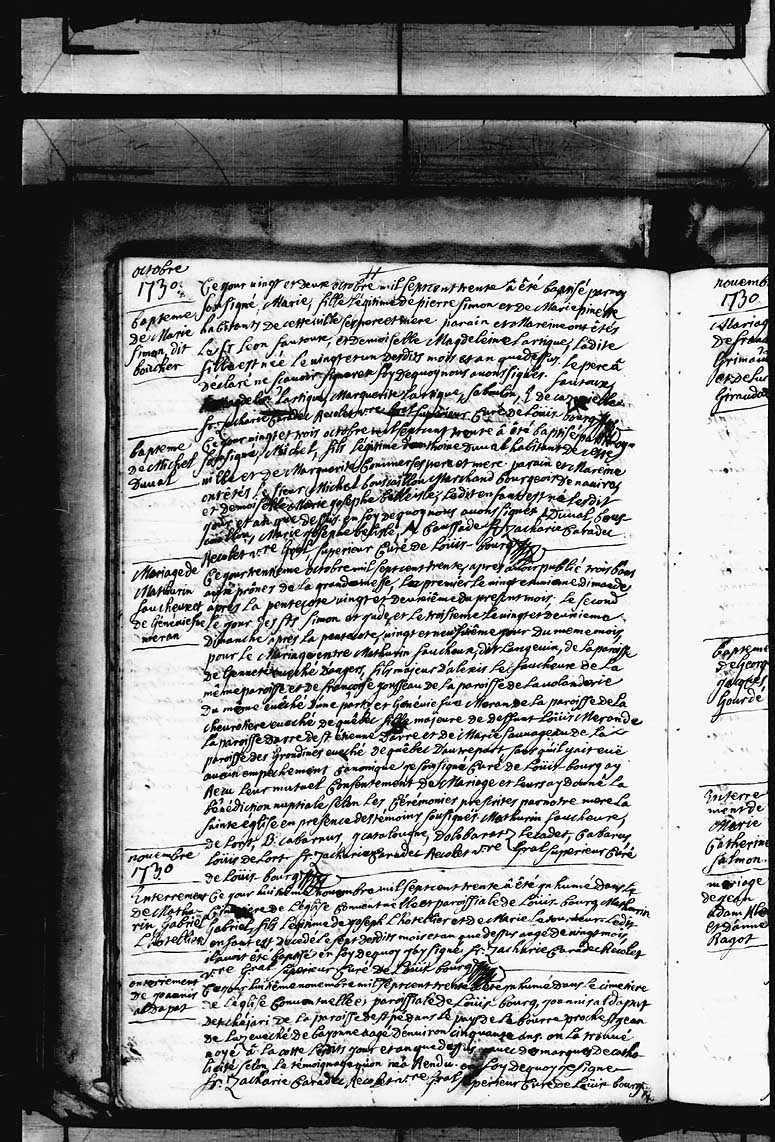 octobre
1730
bapteme
de Marie
Simon dit
boucher
Ce jour vingt et deux octobre mil sept cent trente â été baptisé par moy
soussigné, Marie, fille légitime de pierre Simon et de Marie
habitants de cette ville ses pere et mere parain et Mareine ont étés
Le Sr Leon fautoux, et demoiselle Magdeleine Lartigue, Ladite
fille est née le vingt et un desdits mois et an que dessus. Le pere â
declaré ne scavoir signer en foy de quoy nous avons signés. fautoux
Lartigue, Marguerite Lartigue, Sabculon, L de
fr. Zacharie Caradec Recolet vre gral superieur Curé de Louis bourg
bapteme
de Michel
Duval
Ce jour vingt et trois octobre mil sept cent trente â été baptisé par moy
soussigné, Michel, fils légitime danthoine Duval habitant de cette
ville et de Marguerite ses pere et mere, parain et Mareine
ont étés, le sieur Michel boutouillon Marchand bourgeois de navires
et demoiselle Marie Josephe belleisle, Ledit enfant est né lesdit
jour et an que dessus en foy de quoy nous avons signés. Duval,
Marie Josephe belisle, fr. Zacharie Caradec
Recolet vre Gral superieur Curé de Loüis-bourg
Mariage de
Mathurin
faucheux et
de Génévieève
meran
Ce jour trentieme octobre mil sept cent trente, apres avoir publié trois bans
aux prônes de la grande messe, Le premier le vingt unieme dimanche
apres la pentecote vingt et deuxième du present mois, le second
le jour des Sts Simon et Jude, et le troisieme le vingt deuxieme
Dimanche apres la pentecote, vingt et neufvième jour du meme mois,
pour le Mariage entre Mathurin faucheux dit Langevin, de la paroisse
de Gennet eveché Dangers, fils majeur d'alexis Le faucheux de la
même paroisse et de francoise gousseau de la paroisse de
du même evêché d'une part, et Génévie fve Meran de la paroisse de la
chevrotiere eveché de quebec fille majeure de deffunt Loüis Meran de
la paroisse darre de st etienne Darre et de Marie Sauvageau de la
paroisse des Grondines eveché de quebec D'autre part, sans qu'il y ait eue
aucun empechement Canonique, je soussigné Curé de Louis bourg ay
Recu leur mutuel Consentement de Mariage et leurs ay donné la
bénédiction nuptiale selon les Cérémonies prescrites par notre mere la
sainte église en presence des témoins soussignés Mathurin faucheux,
de Lort, B: Cabarrus, Dolobarat, Leladet, Cabarus
Louis de Lort. fr. Zacharie Caradec Recolet vre gral superieur Curé
de Louis-bourg
novembre
1730
interrement
de Mathu-
rin Gabriel
L'hotellier
Ce jour huitième novembre mil sept cent trente â été inhumé dans le
Cimetiere de l'église Conventuelle et paroissiale de Louis-bourg Mathurin
Gabriel, fils légitime de joseph L'hotellier et de Marie Ledit
enfant est decedé le sept desdits mois et an que dessus agé de vingt mois,
et avoit eté baptisé en foy de quoy jay signé fr. Zacharie Caradec Recolet
vre Gral superieur Curé de Loüis-bourg
enterrement
de joannis
aldapat
Ce jour huitième novembre mil sept cent trente â été inhumé dans le cimetiere
de l'église Conventuelle et paroissiale de Loüis-bourg, joannis aldapat
de la paroisse de st pé dans le pays de Labourre proche st jean
de Luz eveché de bayonne agé d'environ cinquante ans. on la trouvé
noyé â la coste lesdits jour et an que dessus avec des marques de catho
licité selon le témoignage qu'on m'a Rendu. en foy de quoy je signe
fr. Zacharie Caradec, Recolet vre gral superieur Curé de Loüis bourg
novemb
1730
Mariag
de fran
Grimau
et de
Giraud
bapteme
de Georg
jacques
Gourdé
Interre
ment de
Marie
Catherine
Salmon
mariage
de jean
adam
et danne
Ragot